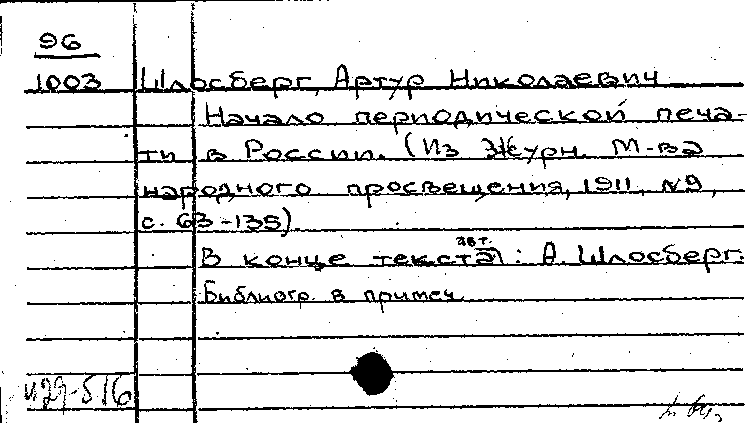 96
1003 Шлосберг, Артур Николаевич
Начало периодической печа-
ти в России. (Из Журн. М-ва
народного просвещения, 1911, №9,
с. 63-135)
авт.
В конце текста : А. Шлосберг.
Библиогр. в примеч.
и29-516